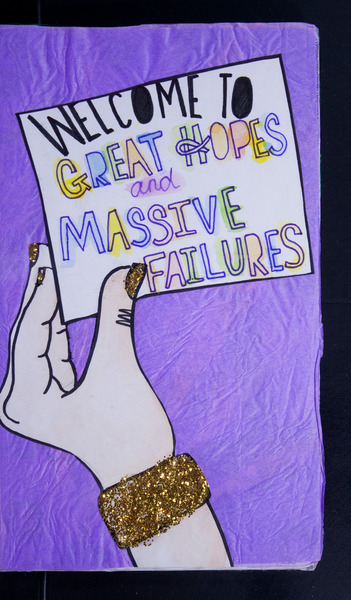 WELCOME TO
GREAT HOPES
and
MASSIVE
FAILURES